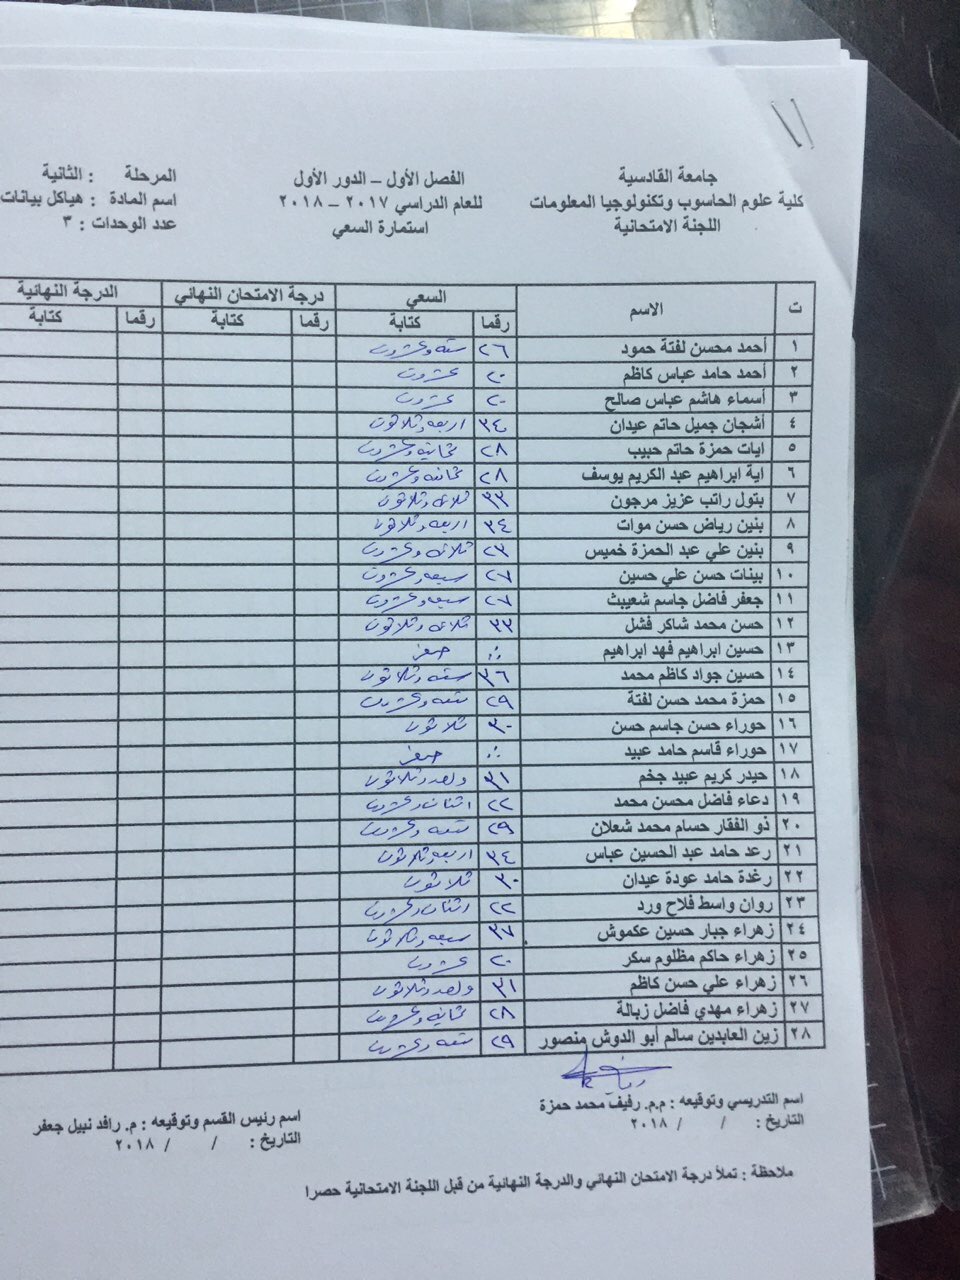 جامعة القادسية
كلية علوم الحاسوب وتكنولوجيا المعلومات
اللجنة الامتحانية
الفصل الأول – الدور الأول
للعام الدراسي ٢٠١٧ – ٢٠١٨
استمارة السعي
المرحلة : الثانية
اسم المادة : هياكل بيانات
عدد الوحدات : ٣
ت الاسم السعي درجة الامتحان النهائي الدرجة النهائية
رقما كتابة رقما كتابة رقما كتابة
١ أحمد محسن لفتة حمود ٢٦ ستة وعشرون
٢ أحمد حامد عباس كاظم ٢٠ عشرون
٣ أسماء هاشم عباس صالح ٢٠ عشرون
٤ أشجان جميل حاتم عيدان ٣٤ اربعة وثلاثون
٥ ايات حمزة حاتم حبيب ٢٨ ثمانية وعشرون
٦ اية ابراهيم عبد الكريم يوسف ٢٨ ثمانية وعشرون
٧ بتول راتب عزيز مرجون ٣٣ ثلاث وثلاثون
٨ بنين رياض حسن موات ٣٤ اربعة وثلاثون
٩ بنين علي عبد الحمزة خميس ٢٣ ثلاث وعشرون
١٠ بينات حسن علي حسين ٢٧ سبعة وعشرون
١١ جعفر فاضل جاسم شعيبث ٢٧ سبعة وعشرون
١٢ حسن محمد شاكر فشل ٣٣ ثلاث وثلاثون
١٣ حسين ابراهيم فهد ابراهيم صفر
١٤ حسين جواد كاظم محمد ٣٦ ستة وثلاثون
١٥ حمزة محمد حسن لفتة ٢٩ تسعة وعشرون
١٦ حوراء حسن جاسم حسن ٣٠ ثلاثون
١٧ حوراء قاسم حامد عبيد صفر
١٨ حيدر كريم عبيد جخم ٣١ واحد وثلاثون
١٩ دعاء فاضل محسن محمد ٢٢ اثنان وعشرون
٢٠ ذو الفقار حسام محمد شعلان ٢٩ تسعة وعشرون
٢١ رعد حامد عبد الحسين عباس ٣٤ اربعة وثلاثون
٢٢ رغدة حامد عودة عيدان ٣٠ ثلاثون
٢٣ روان واسط فلاح ورد ٢٢ اثنان وعشرون
٢٤ زهراء جبار حسين عكموش ٣٧ سبعة وثلاثون
٢٥ زهراء حاكم مظلوم سكر ٢٠ عشرون
٢٦ زهراء علي حسن كاظم ٣١ واحد وثلاثون
٢٧ زهراء مهدي فاضل زبالة ٢٨ ثمانية وعشرون
٢٨ زين العابدين سالم أبو الدوش منصور ٢٩ تسعة وعشرون
اسم التدريسي وتوقيعه : م.م. رفيف محمد حمزة
التاريخ : / / ٢٠١٨
اسم رئيس القسم وتوقيعه : م. رافد نبيل جعفر
التاريخ : / / ٢٠١٨
ملاحظة : تملأ درجة الامتحان النهائي والدرجة النهائية من قبل اللجنة الامتحانية حصرا